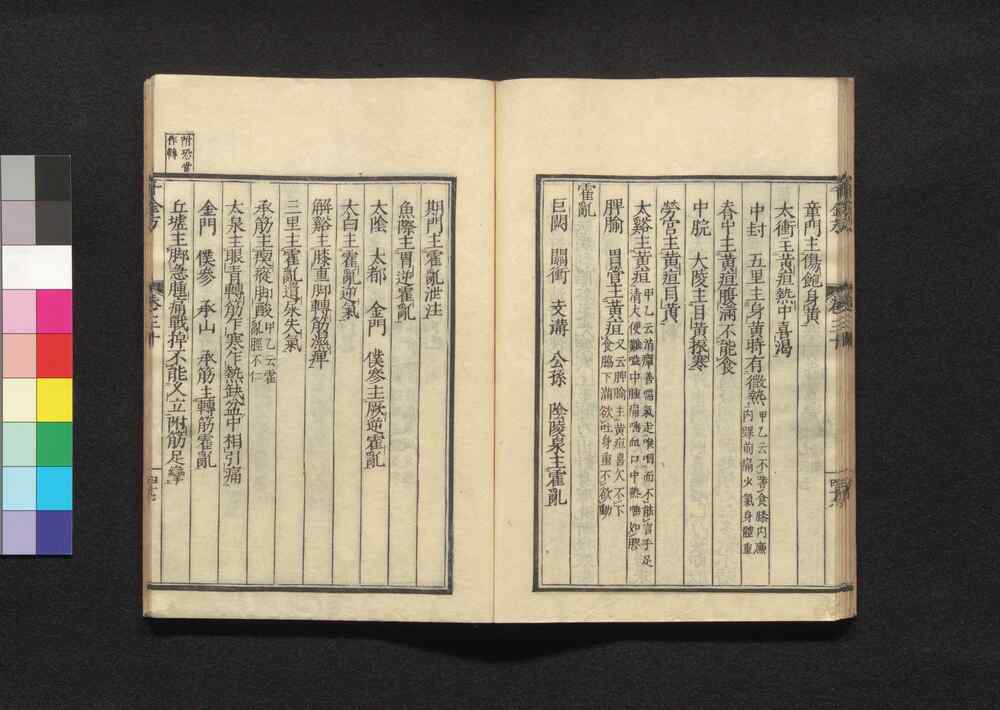 章門主傷飽身黃
太衝主黃疸熱中喜渴
中封　五里主身黃時有微熱甲乙云不善食膝內廉內踝前痛少氣身體重
脊中主黃疸腹滿不能食
中脘　大陵主目黃振寒
勞宮主黃疸目黃
太谿主黃疸甲乙云消癉善喘氣走喉咽而不能言手足清大便難嗌中腫痛唾血口中熱唾如膠
脾腧　胃管主黃疸又云脾腧主黃疸喜欠不下食脇下滿欲吐身重不欲動
霍亂
巨闕　關衝　支溝　公孫　陰陵泉主霍亂
期門主霍亂泄注
魚際主胃逆霍亂
太陰　大都　金門　僕參主厥逆霍亂
太白主霍亂逆氣
解谿主膝重脚轉筋濕痺
三里主霍亂遺尿失氣
承筋主瘈瘲脚酸甲乙云霍亂脛不仁
太泉主眼青轉筋乍寒乍熱缺盆中相引痛
金門　僕參　承山　承筋主轉筋霍亂
丘墟主脚急腫痛戰掉不能久立附筋足攣
附恐當
作轉